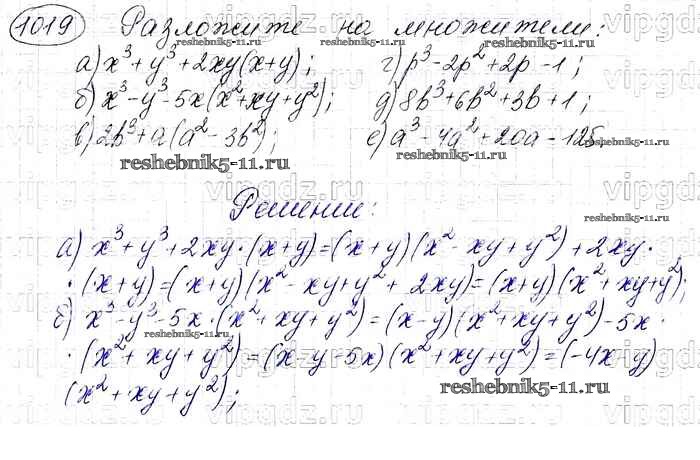 1019 Разложите на множители:
а) x³ + y³ + 2xy(x+y); г) p³ - 2p² + 2p - 1;
б) x³ - y³ - 5x(x² + xy + y²); д) 8b³ + 6b² + 3b + 1;
в) 2b³ + a(a² - 3b²); е) a³ - 4a² + 20a - 125.
reshebnik5-11.ru
Решение:
а) x³ + y³ + 2xy · (x+y) = (x+y)(x² - xy + y²) + 2xy ·
· (x+y) = (x+y)(x² - xy + y² + 2xy) = (x+y)(x² + xy + y²);
б) x³ - y³ - 5x · (x² + xy + y²) = (x-y)(x² + xy + y²) - 5x ·
· (x² + xy + y²) = (x-y-5x)(x² + xy + y²) = (-4x-y)
(x² + xy + y²);
reshebnik5-11.ru
vipgdz.ru